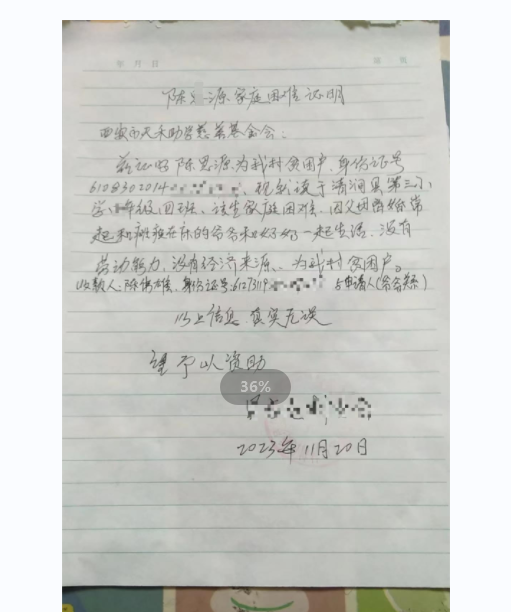 年 月 日
陈 源家庭困难证明
西安市天禾助学慈善基金会：
兹证明陈思源为我村贫困户，身份证号
6108302014 ，现就读于清涧县第三小
学 年级四班、该生家庭困难、因父母离婚常
起和瘫痪在床的爷爷和奶奶一起生活，没有
劳动能力，没有经济来源、为我村贫困户。
收款人：陈 雄、身份证号：6127319 与申请人(爷爷关系)
以上信息 真实无误
望予以资助
36%
2023年11月20日